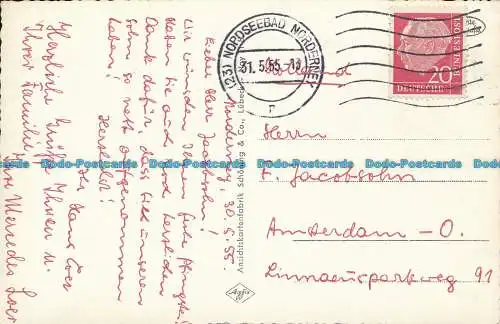 Norderney, 30.5.55.
Lieber Herr Jacobsohn!
Wir wünschen Ihnen frohe Pfingsten!
Haben Sie auch recht herzlichen
Dank dafür, dass Sie unseren
Sohn so nett aufgenommen
haben!
Herzlichst!
Ihr Hans Loer
Herzliche Grüße Ihnen u.
Ihrer Familie,
Ihre Mercedes Loer
Ansichtskartenfabrik Schöning & Co., Lübeck
Agfa
(23) NORDSEEBAD NORDERNEY
31.5.55.-
DEUTSCHE BUNDESPOST
20
Holland
Herrn
E. Jacobsohn
Amsterdam - O.
Linnaeusparkweg 91
Dodo-Postcards Dodo-Postcards Dodo-Postcards Dodo-Postcards Dodo-Postcards